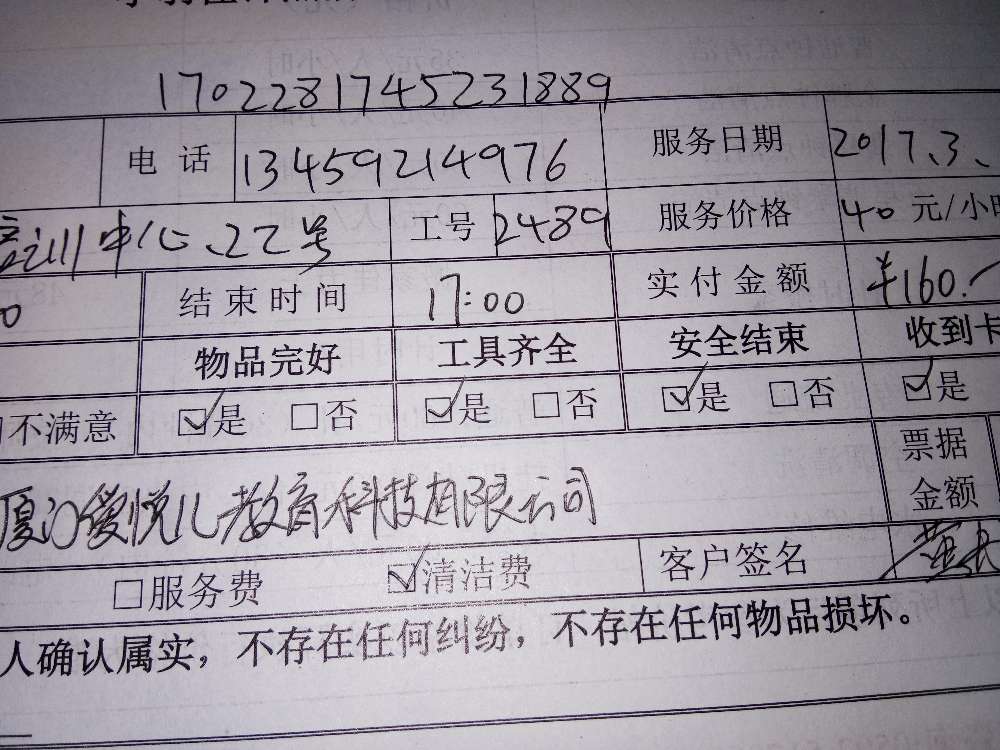 1702281745231889
电话 13459214976 服务日期 2017.3.
训中心、22号 工号 2489 服务价格 40元/小时
结束时间 17:00 实付金额 ¥160.
物品完好 工具齐全 安全结束 收到卡
不满意 ☑是 □否 ☑是 □否 ☑是 □否 ☑是
厦门爱悦儿教育科技有限公司 票据金额
□服务费 ☑清洁费 客户签名
人确认属实，不存在任何纠纷，不存在任何物品损坏。